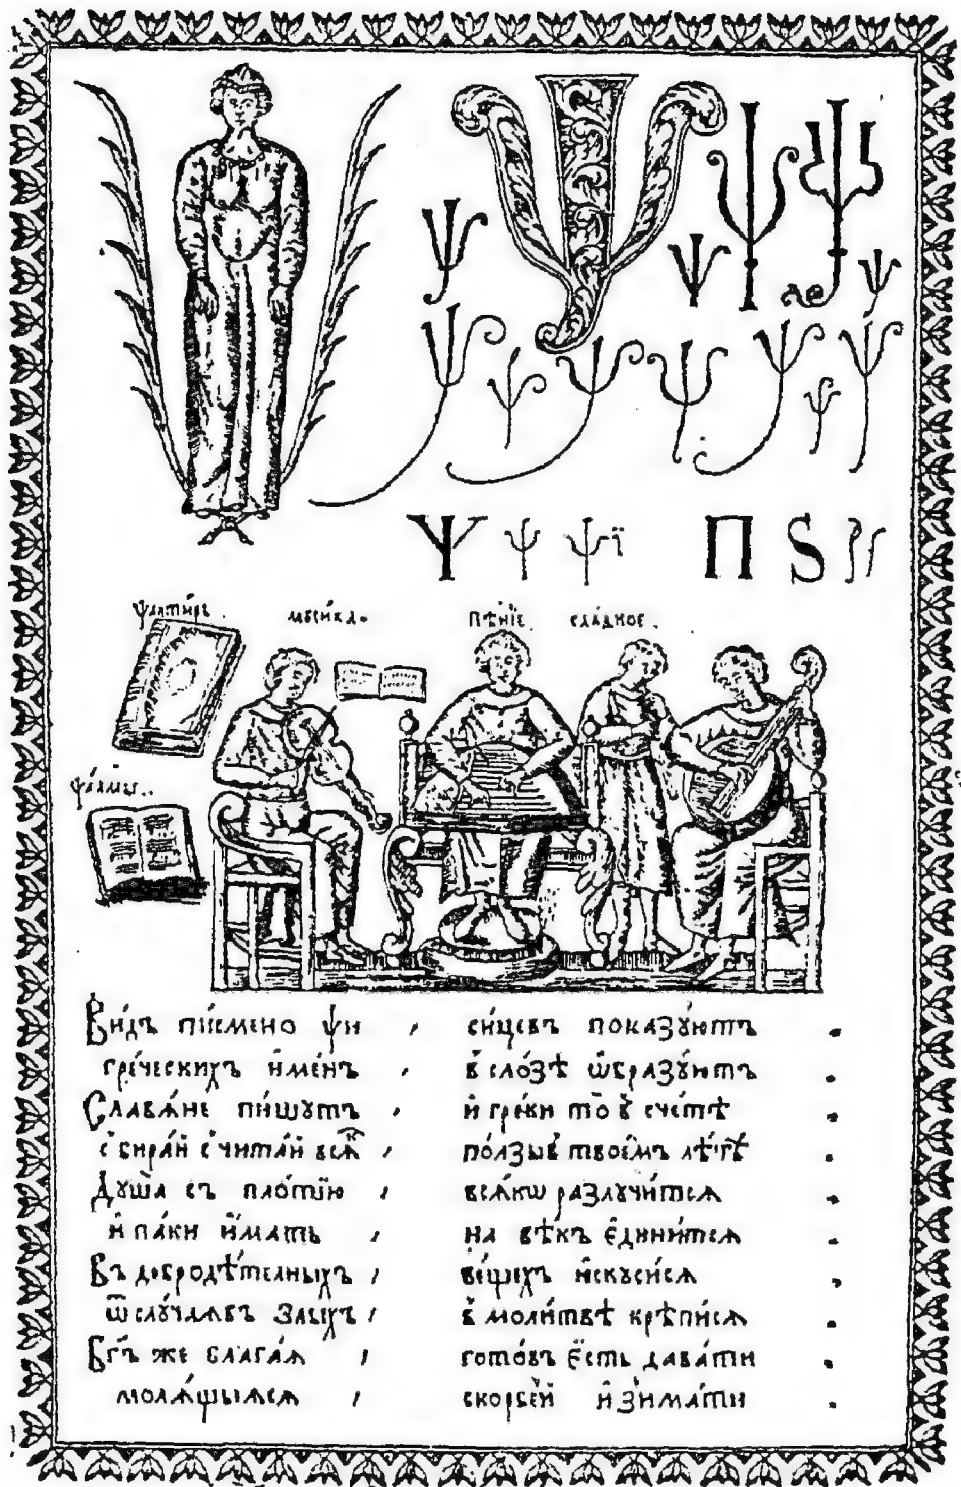 Ѱ ѱ ѱї П Ѕ
ѱалтирь мꙋсика. пѣнїе сладкое.
ѱалмы.
Видъ писмено ѱи , сицевъ показꙋютъ .
греческихъ именъ , в слозѣ ѡбразꙋютъ .
Славѧне пишꙋтъ , и греки то в счетѣ .
сбирай считай , ползы в твоемъ лѣтѣ .
Дꙋша съ плотїю , всѧкѡ разлꙋчитсѧ .
и паки имать , на вѣкъ единитсѧ .
Въ добродѣтелныхъ , вещехъ искꙋсисѧ .
ѿ слꙋчаѧвъ злыхъ , в молитвѣ крѣписѧ .
Бг҃ъ же благаѧ , готовъ есть давати .
молѧщымсѧ , скорбей изимати .